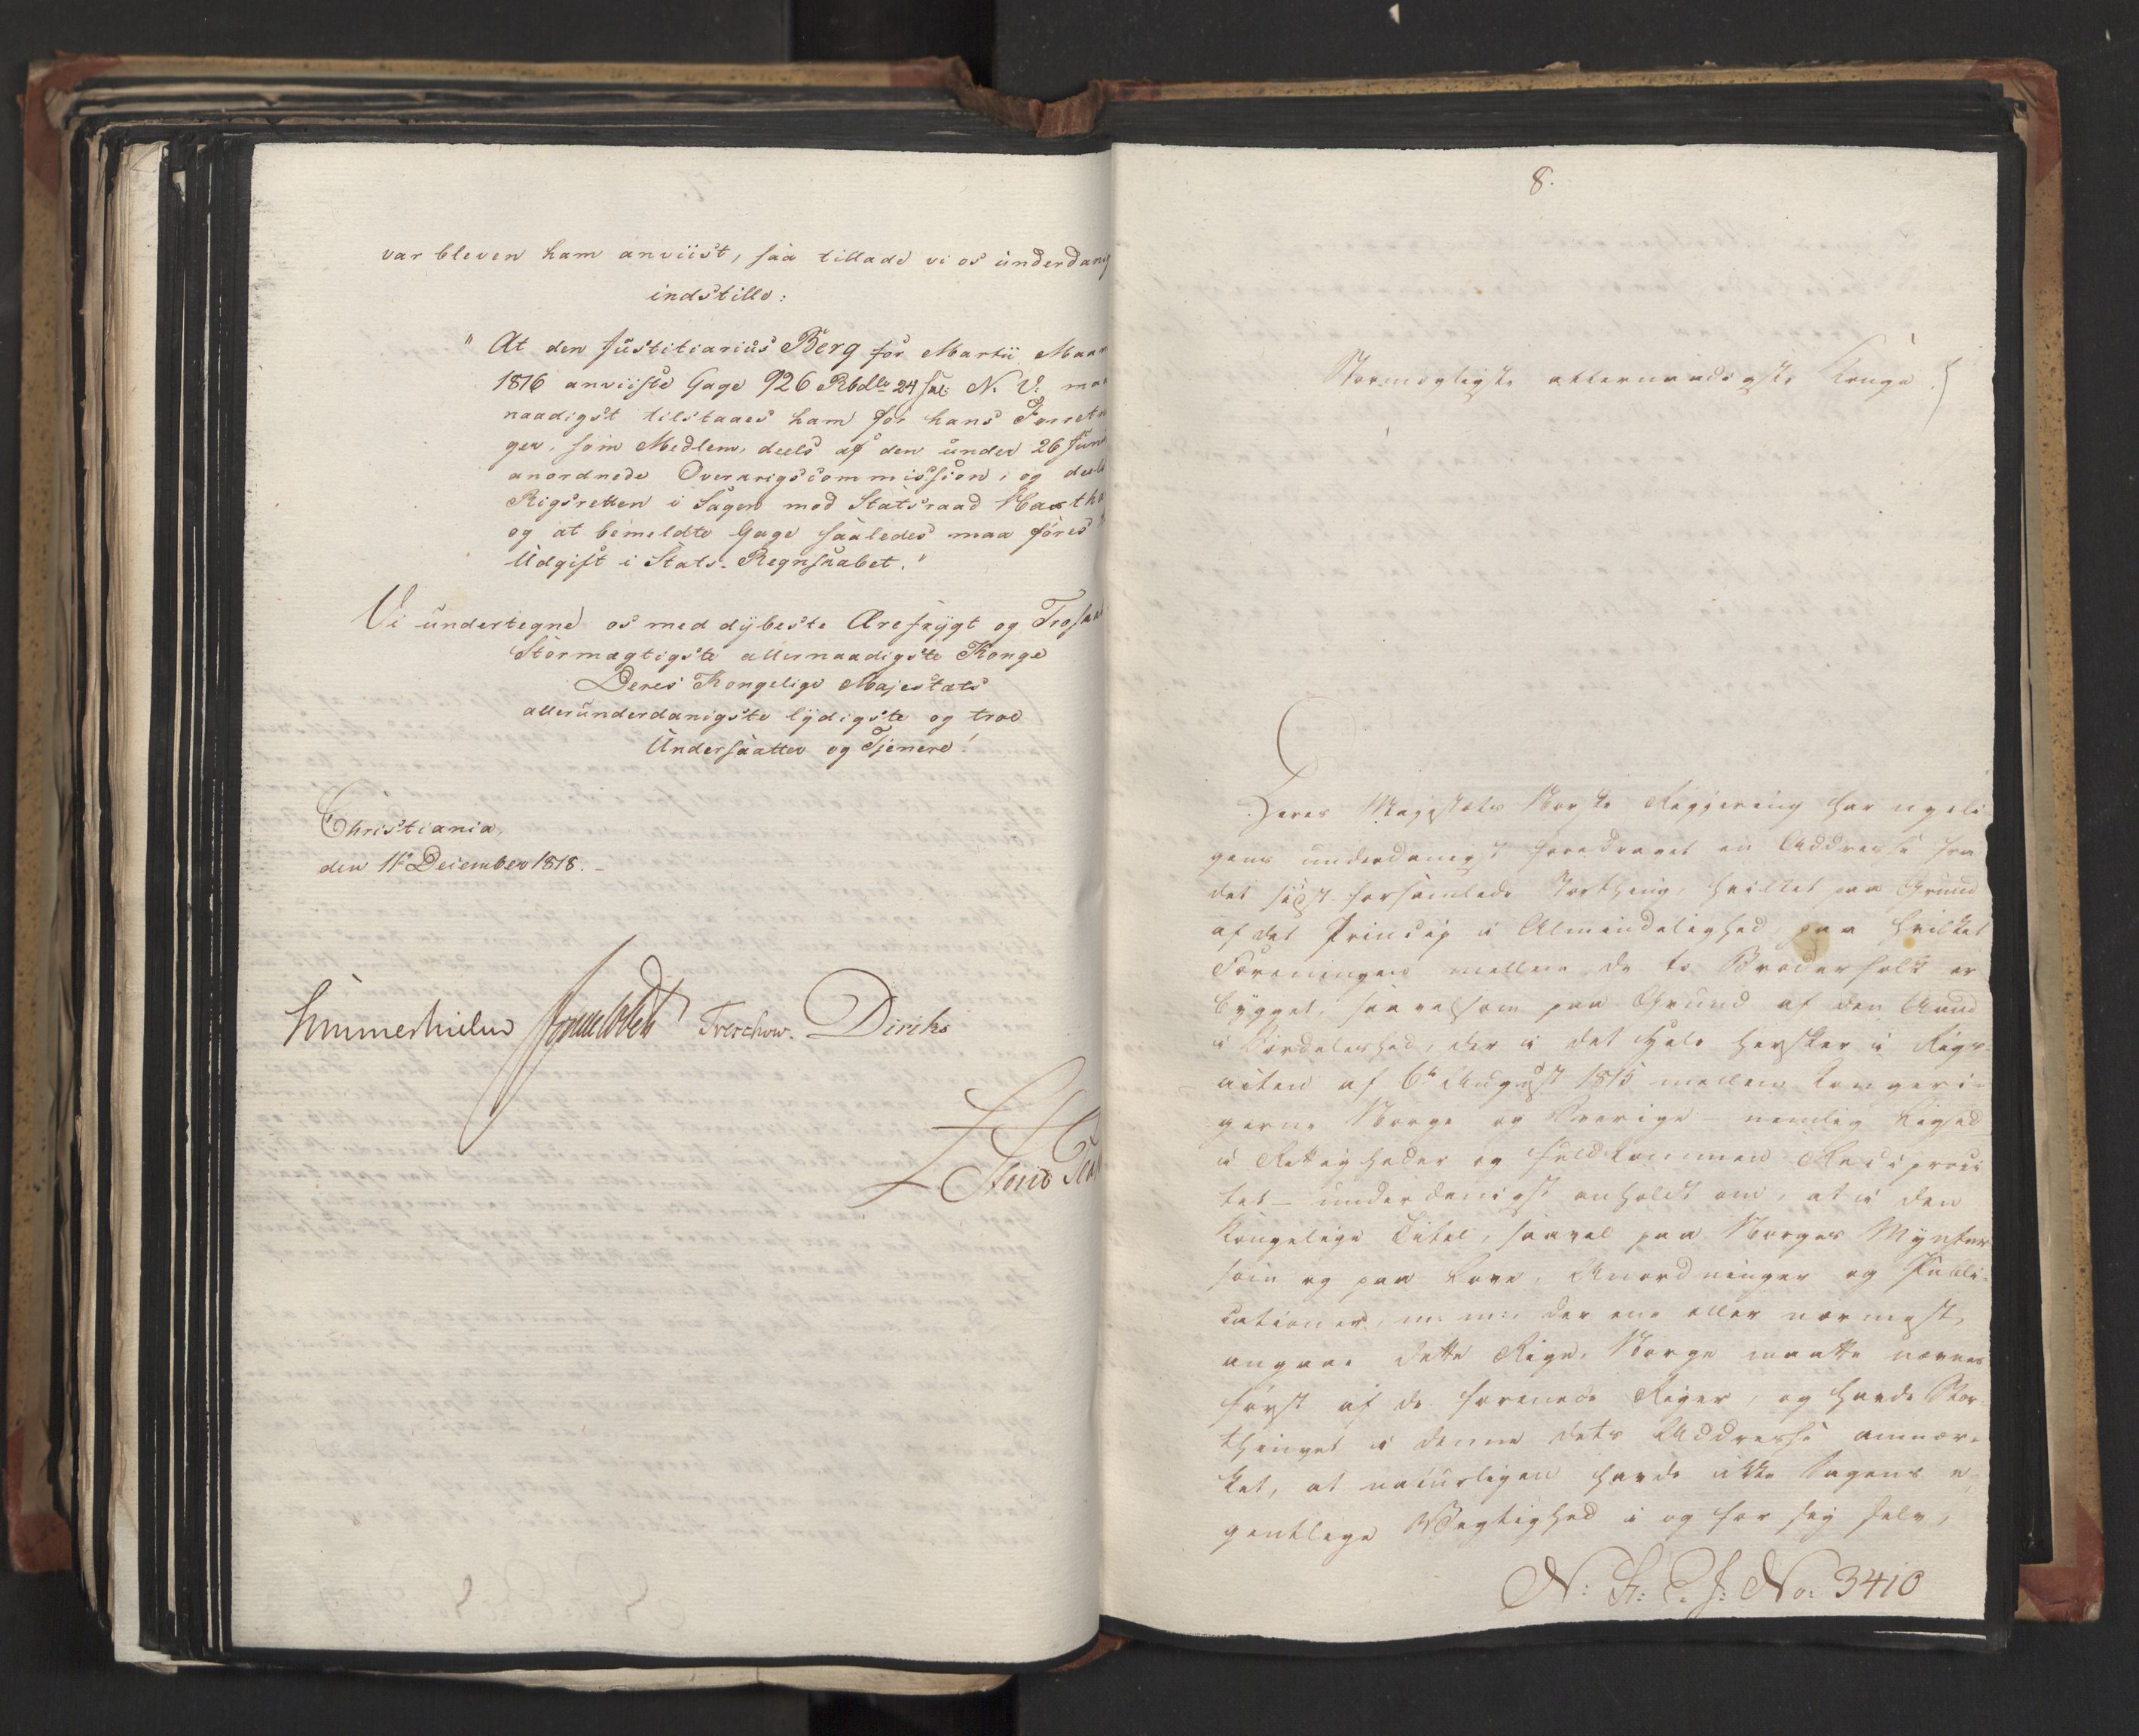 var bleven ham anviist, saa tillade vi os underdanig
indstille:
" At den Justitiarius Berg for Martii Maan
1816 anviiste Gage 926 Rbdlr 24 skl: N. V: maa
naadigst tilstaaes ham for hans Forretn
ger, som Medlem, deels af den under 26 Juni
anordnede Overkrigscommission, og deels
Rigsretten i Sagen mod Statsraad Haxtha
og at bemeldte Gage saaledes maa føres
Udgift i Stats-Regnskabet."
Vi undertegne os med dybeste Ærefrygt og Troska
Stormægtigste allernaadigste Konge
Deres Kongelige Majestæts
allerunderdanigste lydigste og troe
Undersaatter og Tjenere!
Christiania,
den 11e December 1818.-
Sommerhielm Treschow. Diriks
8.
Stormægtigste allernaadigste Konge!
Deres Majestæts Norske Regjering har nyeli-
gens underdanigst foredraget en Addresse fra
det sidst forsamlede Storthing, hvilket paa Grund
af det Princip i Almindelighed, paa hvilket
Foreningen mellem de to Broderfolk er
bygget, saavelsom paa Grund af den Aand
i Særdeleshed, der i det Hele hersker i Rigs-
acten af 6te August 1815 mellem Kongeri-
gerne Norge og Sverige - nemlig Lighed
i Rettigheder og fuldkommen Reciproci-
tet - underdanigst anholdt om, at i den
Kongelige Titel, saavel paa Norges Mynter
som og paa Love, Anordninger og Publi-
cationer, m: m: der ene eller nærmest
angaae dette Rige, Norge maatte nævnes
først af de forenede Riger, og havde Stor-
thinget i denne dets Addresse anmær-
ket, at naturligen havde ikke Sagens e-
gentlige Vigtighed i og for sig selv,
N: St: E. J: No: 3410